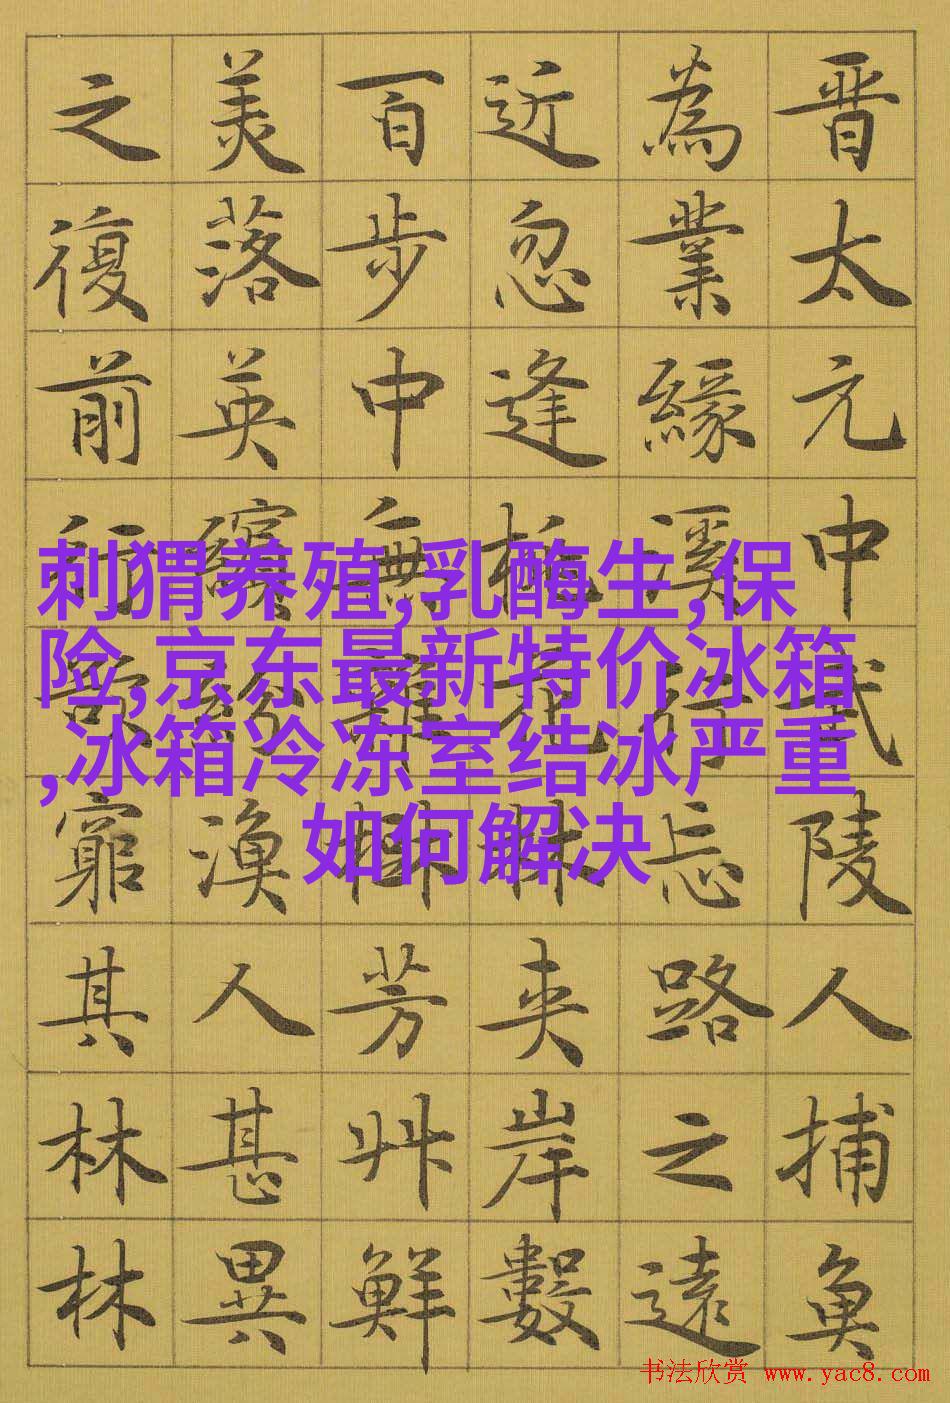 晋太元中武陵人捕魚
為業緣溪行忘路之遠
近忽逢桃花林夾岸數
百步中無雜樹芳艸鮮
美落英繽紛漁人甚異
之復前行欲窮其林林
刺猬养殖,乳酶生,保
险,京东最新特价冰箱
,冰箱冷冻室结冰严重
如何解决
书法欣赏 www.yac8.com